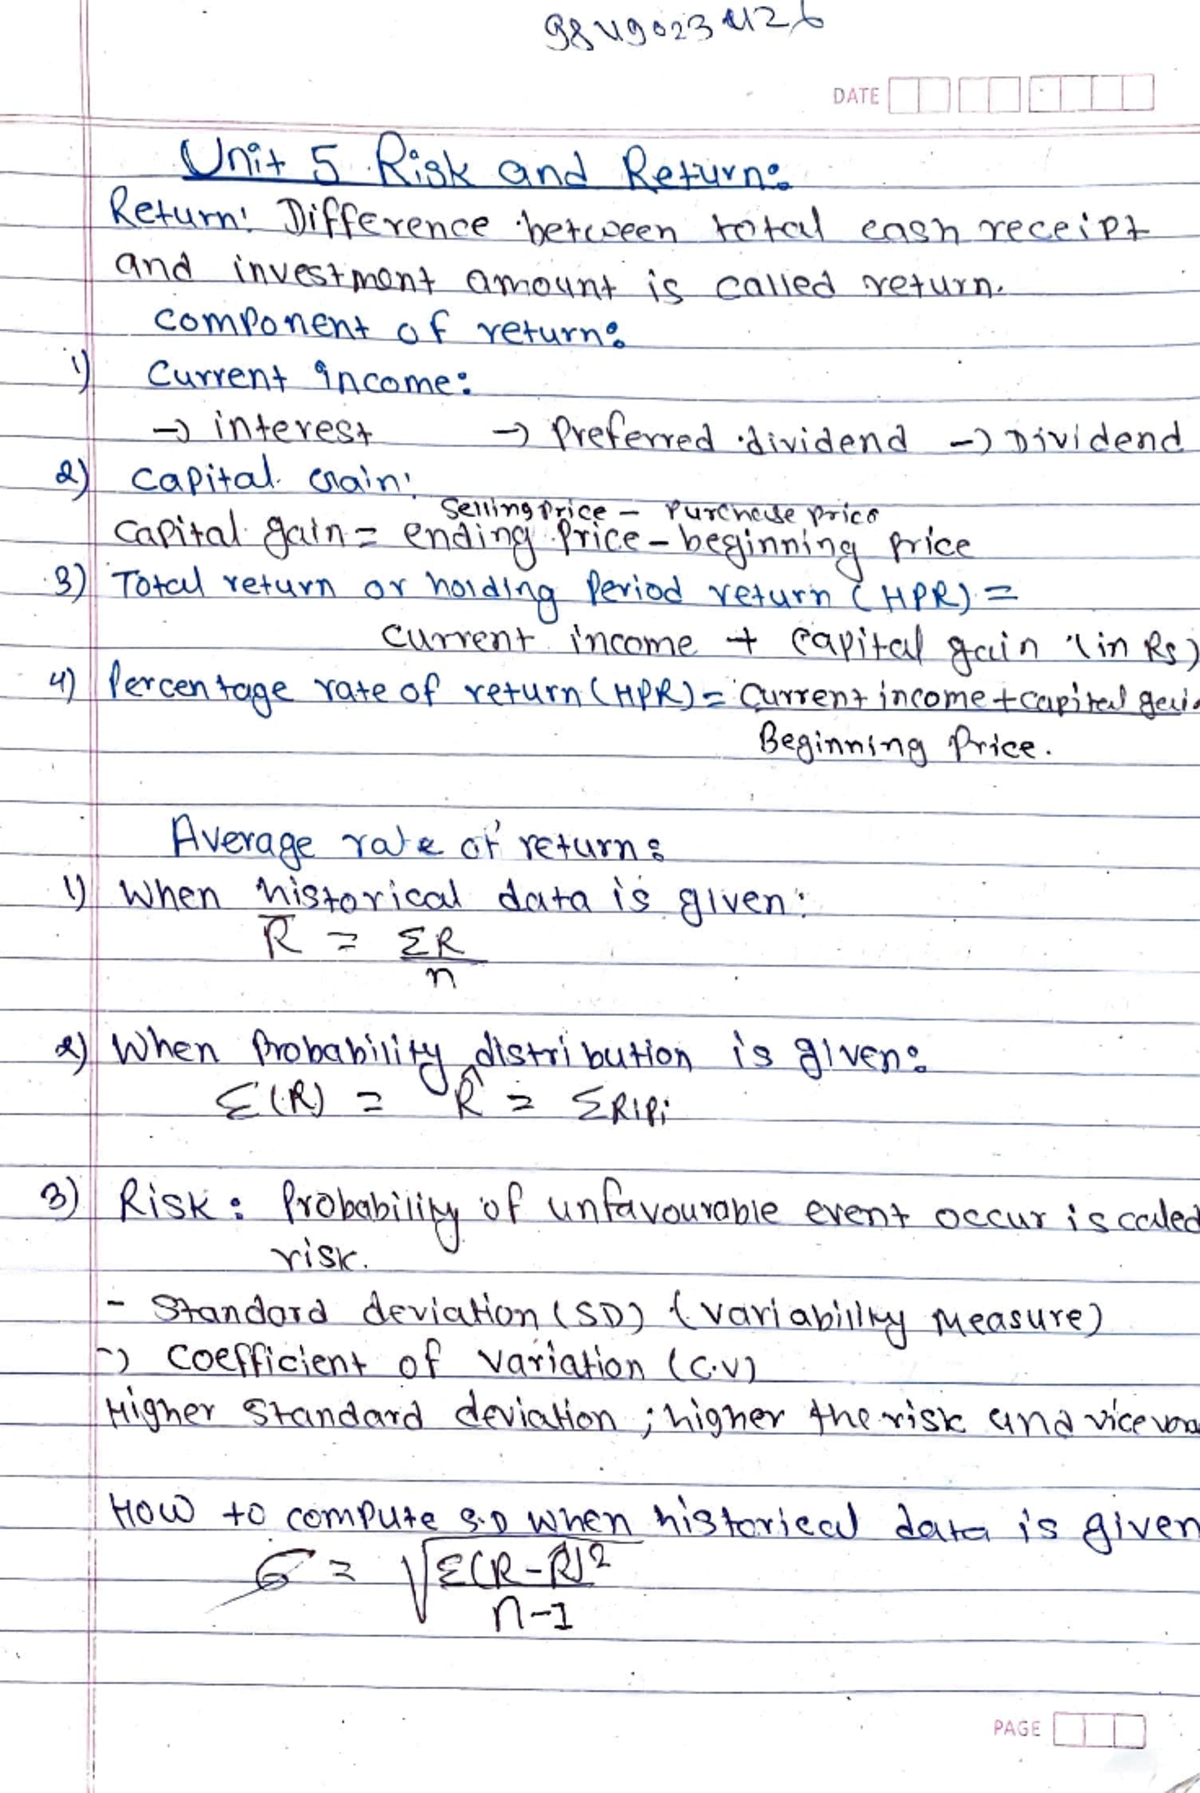 9849023426
DATE
Unit 5 Risk and Return:
Return: Difference between total cash receipt
and investment amount is called return.
component of return:
1) Current income:
→ interest → Preferred dividend → Dividend
2) Capital Gain:
Selling Price – Purchase price
Capital gain = ending Price – beginning Price
3) Total return or holding Period return (HPR) =
Current income + Capital gain (in Rs)
4) Percentage rate of return (HPR) = Current income + capital gain
Beginning Price.
Average rate of return:
1) When historical data is given:
R̅ = ΣR
n
2) When Probability distribution is given:
Σ(R) = R̂ = ΣRiPi
3) Risk: Probability of unfavourable event occur is called
risk.
- Standard deviation (SD) (variability Measure)
→ Coefficient of variation (C.V)
Higher Standard deviation ; higher the risk and vice versa
How to compute S.D when historical data is given
σ = √Σ(R-R̅)²
n-1
PAGE